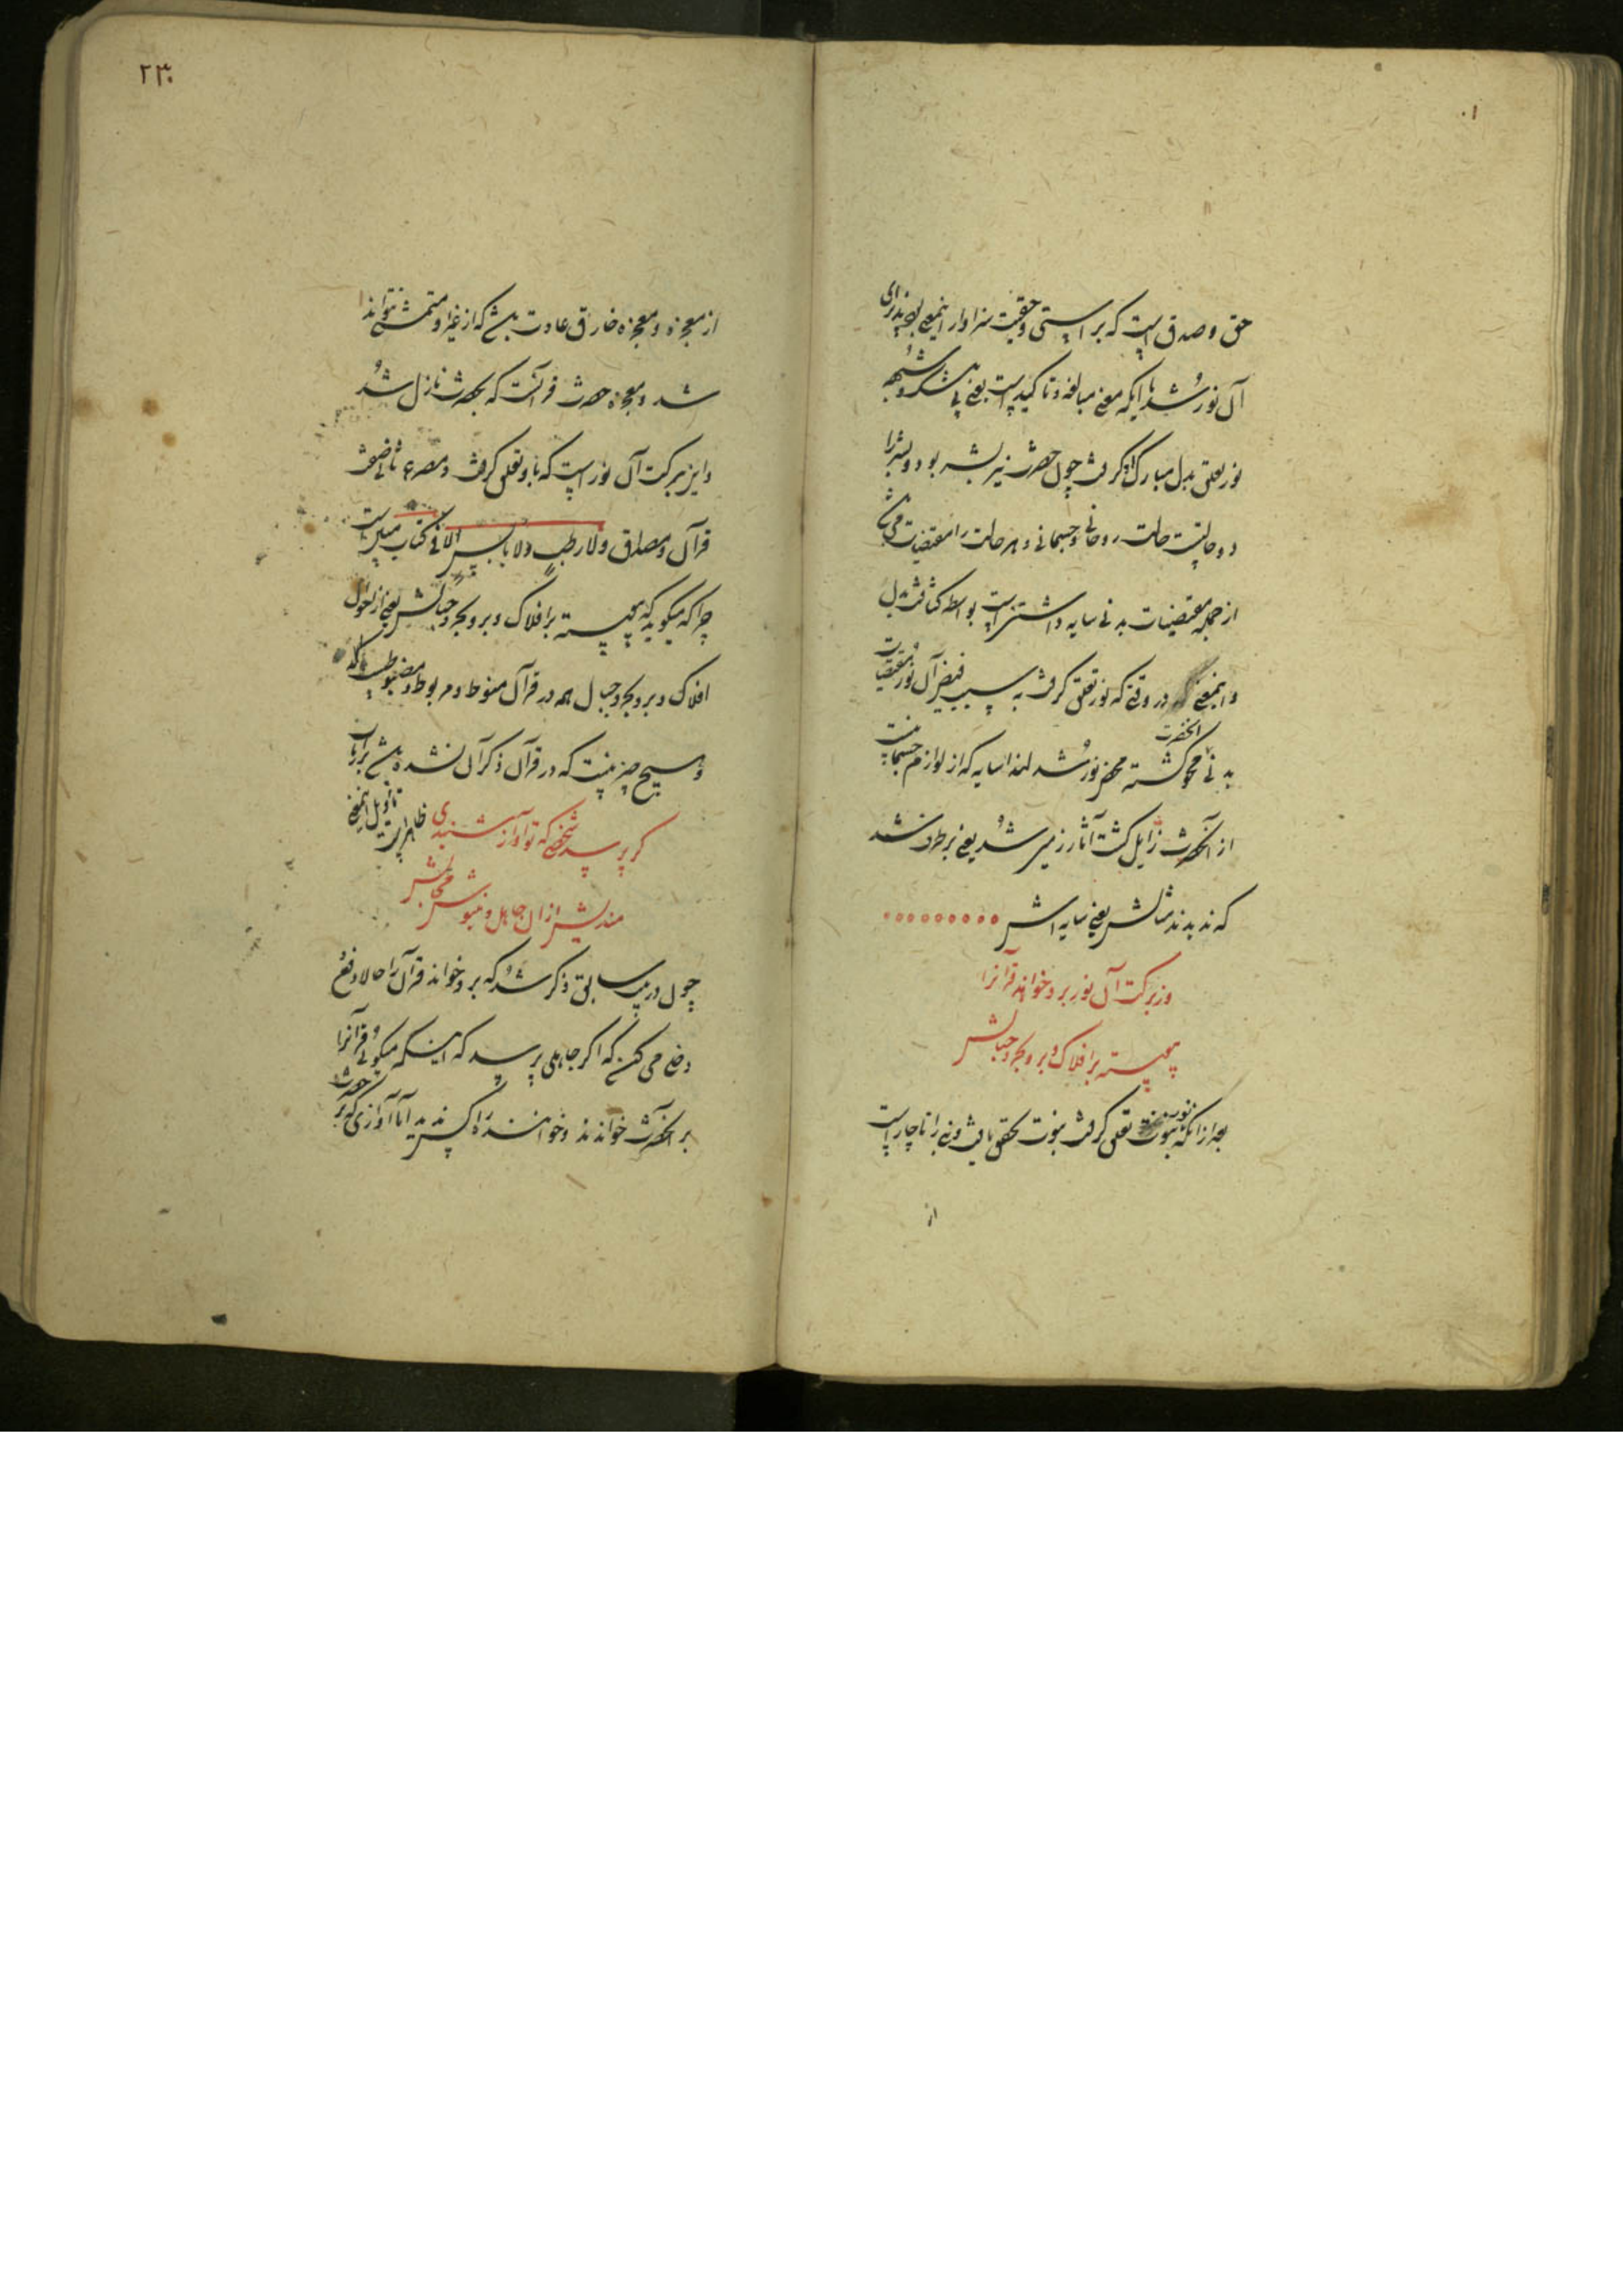 حق و صدق است که براستی و حقیقت سزاوار اینمعنی بود پذیرای
آن نور شد با آنکه معنی مبالغه و تاکید است یعنی بی شک و شبهه
نور تعلق بدل مبارک او گرفت چون حضرت نیز بشر بود و بشر را
دو حالتست حالت روحانی و جسمانی و هر حالت را مقتضیات می باشد
از جمله مقتضیات بدنی سایه داشتن است بواسطه کثافت بدن
و اینمعنی در وقتی که نور تعلق گرفت به سبب فیض آن نور مقتضیات
بدنی آنحضرت محو گشته محض نور شد لهذا سایه که از لوازم جسمانیت
از آنحضرت زایل گشت آثار زمین شد یعنی برطرف شد
که ندیدند مثالش یعنی سایه اش
وز برکت آن نور برو خواند قرآنرا
پیوسته بر افلاک و بروج و جبالش
بعد از آنکه نور نبوت تعلق گرفت نبوت تحقق یافت و نبی را ناچار است
از
۲۳۰
از معجزه و معجزه خارق عادت باشد که از غیر او متمشی نتواند
شد و معجزه حضرت قرآنست که بحضرت نازل شد
و این ببرکت آن نور است که باو تعلق گرفت و مصرع ثانی صفت
قرآن و مصداق ولا رطب ولا یابس الا فی کتاب مبین است
چرا که میگوید که پیوسته بر افلاک و بروج و جبالش یعنی از احوال
افلاک و بروج و جبال همه در قرآن منوط و مربوط و مضبوطست که
و هیچ چیز نیست که در قرآن ذکر آن نشده باشد بر ارباب
تاویل اینمعنی ظاهر است
گر پرسد شخصی که تو آواز شنیدی
مندیش از آن جاهل و منیوش محالش
چون در بیت سابق ذکر شد که برو خواند قرآن را حالا دفع
دخلی می کند که اگر جاهلی پرسد که اینکه میگوئی قرآنرا
بر آنحضرت خواندند و خواننده را کس ندید اما آوازی که بر حضرت